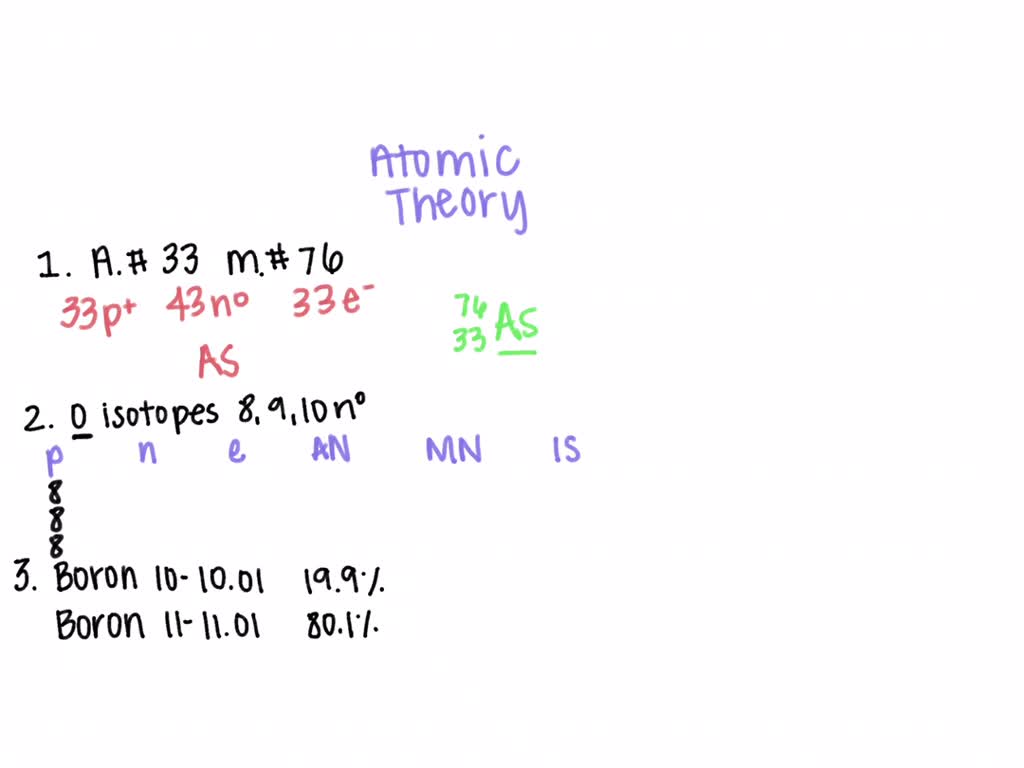 Atomic
Theory
1. A.# 33 m.# 76
33p⁺ 43n⁰ 33e⁻
76
33 As
As
2. O isotopes 8, 9, 10 n⁰
p n e AN MN IS
8
8
8
3. Boron 10- 10.01 19.9%
Boron 11- 11.01 80.1%